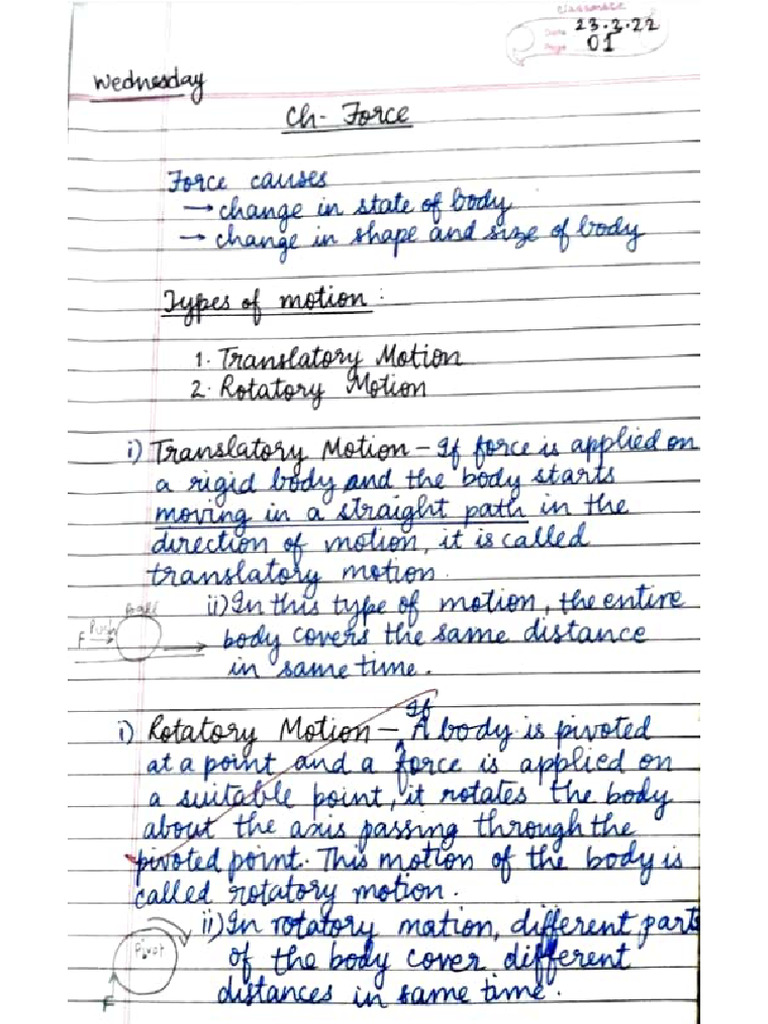 classmate
Date 23.2.22
Page 01
Wednesday
Ch- Force
Force causes
→ change in state of body
→ change in shape and size of body
Types of motion :
1. Translatory Motion
2. Rotatory Motion
i) Translatory Motion - If force is applied on
a rigid body and the body starts
moving in a straight path in the
direction of motion, it is called
translatory motion.
ii) In this type of motion, the entire
F Push
body covers the same distance
in same time.
If
i) Rotatory Motion - A body is pivoted
at a point and a force is applied on
a suitable point, it rotates the body
about the axis passing through the
pivoted point. This motion of the body is
called rotatory motion.
ii) In rotatory mation, different parts
Pivot
of the body cover different
F
distances in same time.